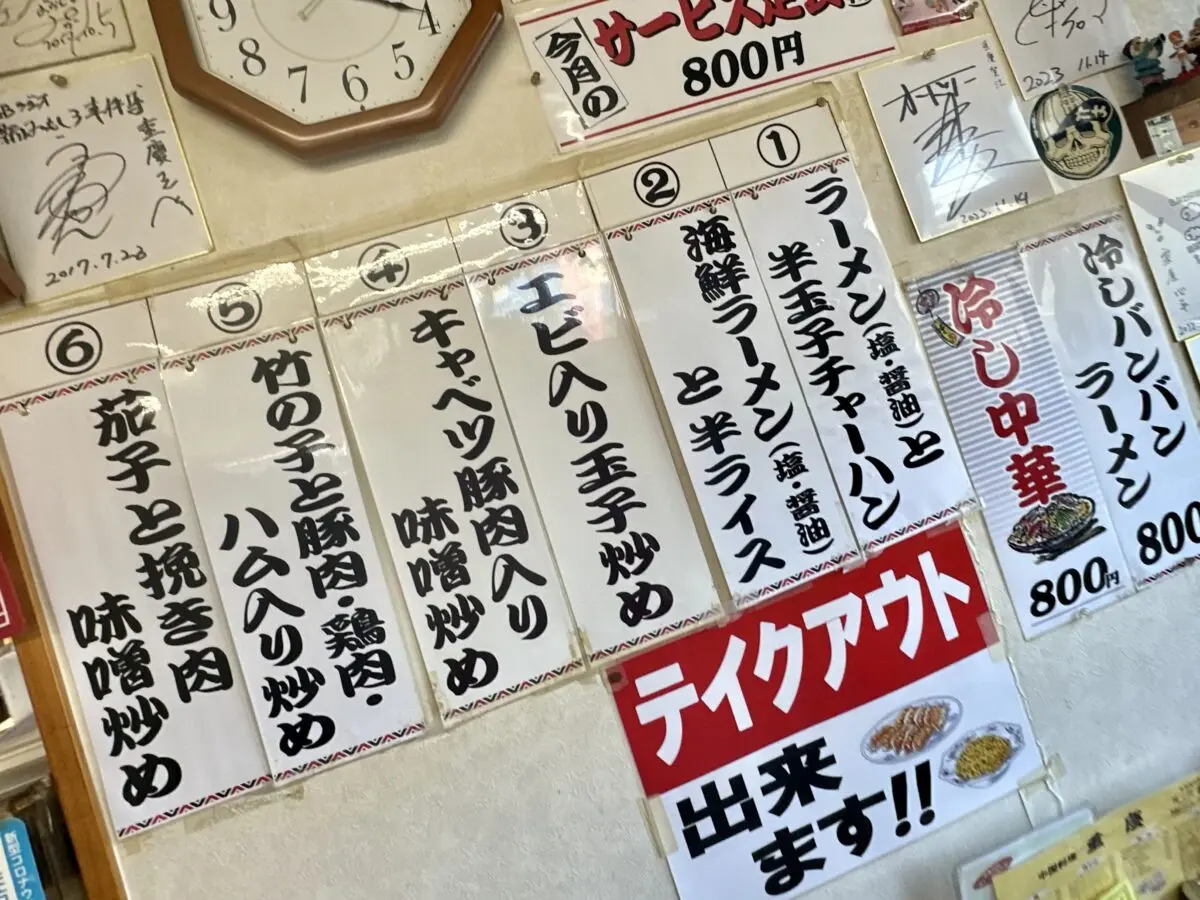 今月の
サービス定食
800円
①
ラーメン(塩・醤油)と
半玉子チャーハン
②
海鮮ラーメン(塩・醤油)
と半ライス
③
エビ入り玉子炒め
④
キャベツ豚肉入り
味噌炒め
⑤
竹の子と豚肉・鶏肉・
ハム入り炒め
⑥
茄子と挽き肉
味噌炒め
冷しバンバン
ラーメン
800
冷し中華
800円
テイクアウト
出来
ます!!
9
8
7
6
5
4
2017.7.28
2023 11.14
2023.11.14
新型コロナウ
中国料理